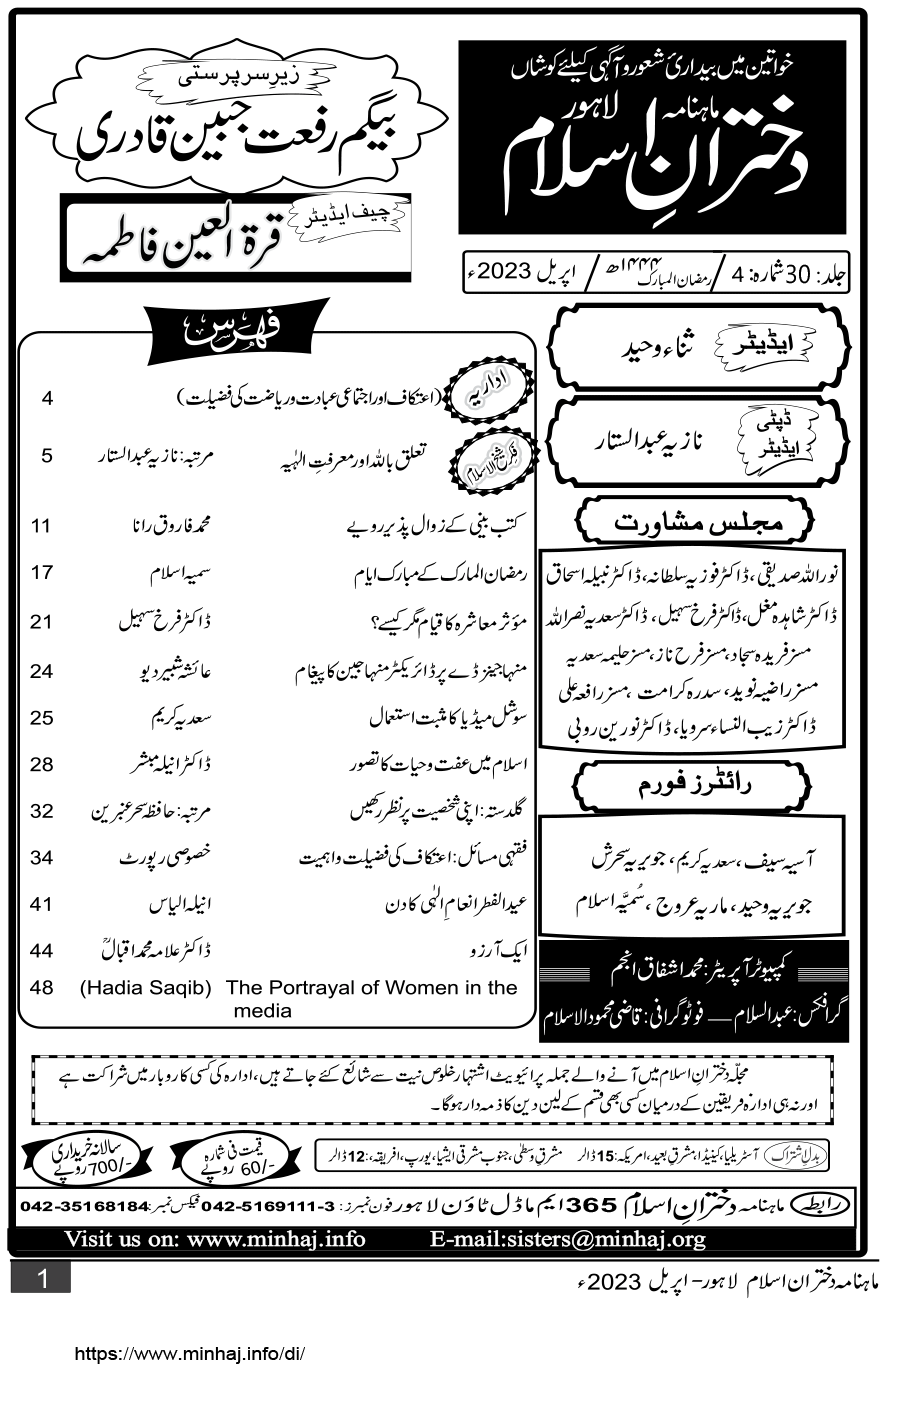 خواتین میں بیداریٔ شعور و آگہی کیلئے کوشاں
ماہنامہ لاہور
دخترانِ اسلام
زیرِ سرپرستی
بیگم رفعت جبین قادری
چیف ایڈیٹر
قرۃ العین فاطمہ
جلد: 30 شمارہ: 4 / رمضان المبارک ۱۴۴۴ھ / اپریل 2023ء
ایڈیٹر ثناء وحید
ڈپٹی ایڈیٹر نازیہ عبدالستار
مجلس مشاورت
نور اللہ صدیقی، ڈاکٹر فوزیہ سلطانہ، ڈاکٹر نبیلہ اسحاق
ڈاکٹر شاہدہ مغل، ڈاکٹر فرخ سہیل، ڈاکٹر سعدیہ نصراللہ
مسز فریدہ سجاد، مسز فرح ناز، مسز حلیمہ سعدیہ
مسز راضیہ نوید، سدرہ کرامت، مسز رافعہ علی
ڈاکٹر زیب النساء سرویا، ڈاکٹر نورین روبی
رائٹرز فورم
آسیہ سیف، سعدیہ کریم، جویریہ سحرش
جویریہ وحید، ماریہ عروج، سُمیَّہ اسلام
کمپیوٹر آپریٹر: محمد اشفاق انجم
گرافکس: عبدالسلام — فوٹوگرافی: قاضی محمود الاسلام
فہرس
اداریہ (اعتکاف اور اجتماعی عبادت و ریاضت کی فضیلت) 4
فکرِ شیخ الاسلام تعلق باللہ اور معرفتِ الٰہیہ مرتبہ: نازیہ عبدالستار 5
کتب بینی کے زوال پذیر رویے محمد فاروق رانا 11
رمضان المارک کے مبارک ایام سمیہ اسلام 17
مؤثر معاشرہ کا قیام مگر کیسے؟ ڈاکٹر فرخ سہیل 21
منہاجینز ڈے پر ڈائریکٹر منہاجین کا پیغام عائشہ شبیر دیو 24
سوشل میڈیا کا مثبت استعمال سعدیہ کریم 25
اسلام میں عفت و حیات کا تصور ڈاکٹر انیلہ مبشر 28
گلدستہ: اپنی شخصیت پر نظر رکھیں مرتبہ: حافظہ سحر عنبرین 32
فقہی مسائل: اعتکاف کی فضیلت و اہمیت خصوصی رپورٹ 34
عید الفطر انعامِ الٰہی کا دن انیلہ الیاس 41
ایک آرزو ڈاکٹر علامہ محمد اقبالؒ 44
48 (Hadia Saqib) The Portrayal of Women in the
media
مجلّہ دخترانِ اسلام میں آنے والے جملہ پرائیویٹ اشتہار خلوصِ نیت سے شائع کئے جاتے ہیں، ادارہ کی کسی کاروبار میں شراکت ہے
اور نہ ہی ادارہ فریقین کے درمیان کسی بھی قسم کے لین دین کا ذمہ دار ہوگا۔
بدلِ اشتراک آسٹریلیا، کینیڈا، مشرقِ بعید، امریکہ: 15 ڈالر مشرقِ وسطیٰ، جنوب مشرقی ایشیا، یورپ، افریقہ، :12 ڈالر
قیمت فی شمارہ
60/- روپے
سالانہ خریداری
700/- روپے
رابطہ ماہنامہ دخترانِ اسلام 365 ایم ماڈل ٹاؤن لاہور فون نمبرز: 042-5169111-3 فیکس نمبر: 042-35168184
Visit us on: www.minhaj.info E-mail:sisters@minhaj.org
ماہنامہ دختران اسلام لاہور – اپریل 2023ء 1
https://www.minhaj.info/di/